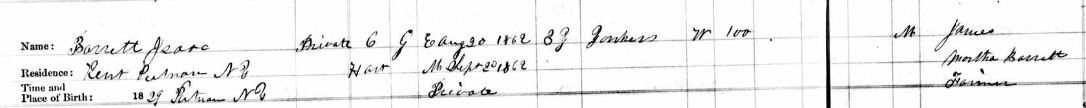 Name: Barrett Isaac Private 6 G E aug 20 1862 3 Y Yonkers W 100 . M James
Residence: Kent Putnam N Y Hart M Sept 20 1862 Martha Barrett
Time and Place of Birth: 1829 Putnam N Y Private Farmer